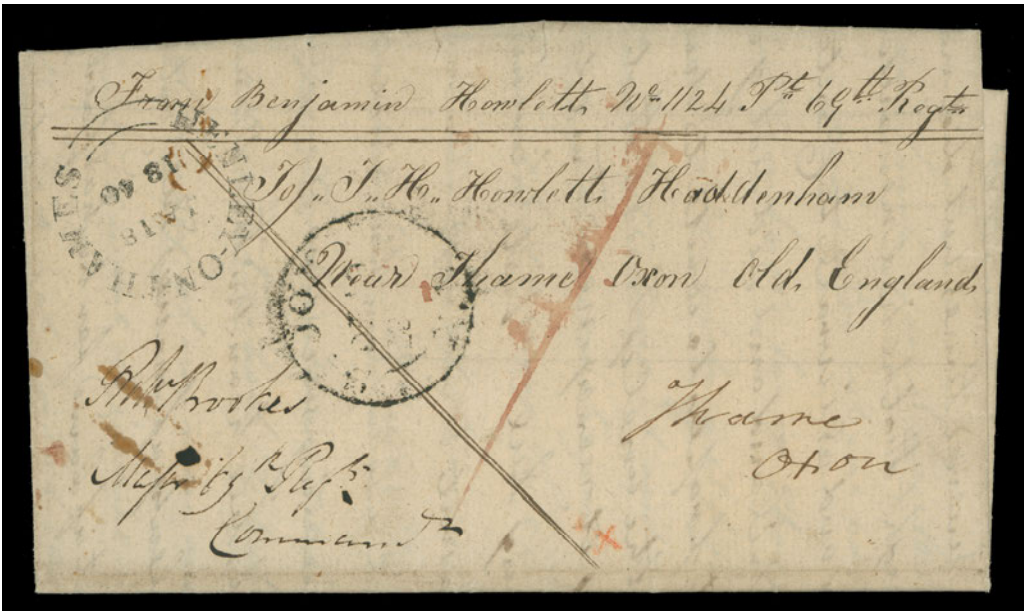 From Benjamin Howlett, No 1124 Pt 69th Regt
To) „ J„ H„ Howlett, Haddenham
Near Thame, Oxon Old England
HENLEY-ON-THAMES
JA 18
18 40
Brookes
Major 69th Regt
Command
Thame
Oxon